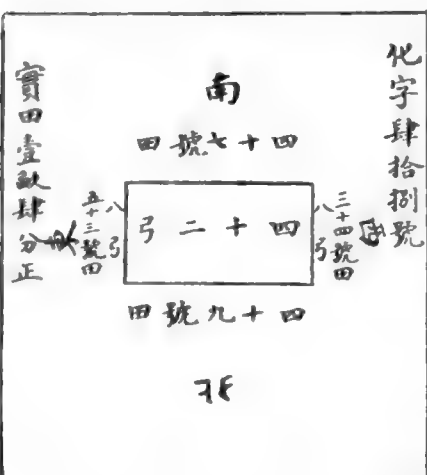 化字肆拾捌號
南
四十七號田
西
三十四號田
八弓
四十二弓
八弓
五十三號田
東
四十九號田
北
實田壹畝肆分正